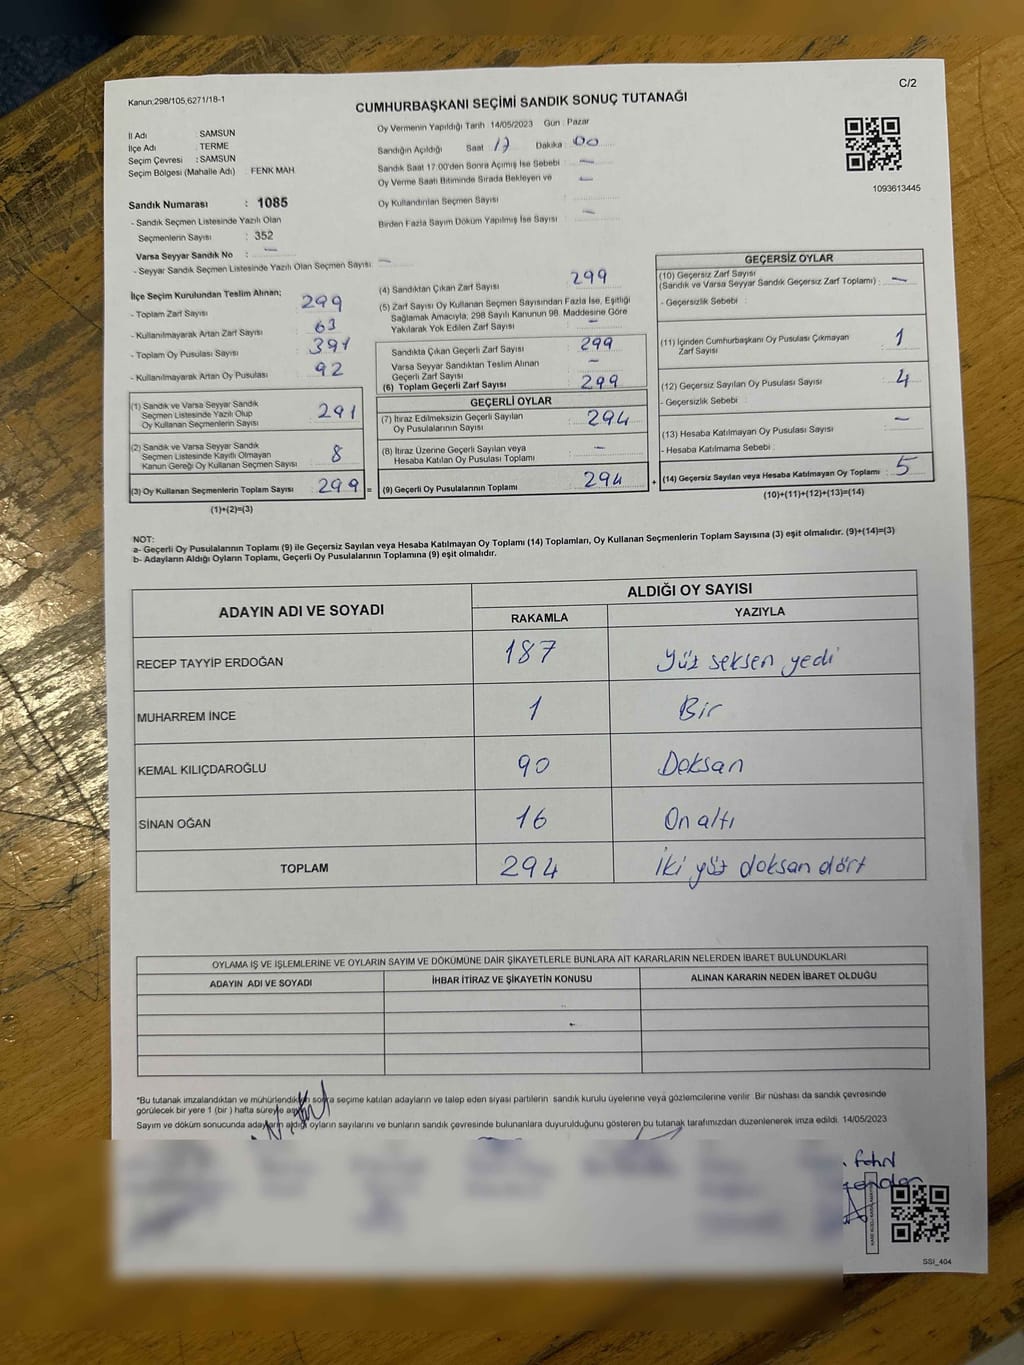 Kanun;298/105,6271/18-1
C/2
CUMHURBAŞKANI SEÇİMİ SANDIK SONUÇ TUTANAĞI
İl Adı : SAMSUN
İlçe Adı : TERME
Seçim Çevresi : SAMSUN
Seçim Bölgesi (Mahalle Adı) : FENK MAH
Oy Vermenin Yapıldığı Tarih : 14/05/2023 Gün : Pazar
Sandığın Açıldığı Saat : 17 Dakika : 00
Sandık Saat 17:00'den Sonra Açımış İse Sebebi : —
Oy Verme Saati Bitiminde Sırada Bekleyen ve : —
Oy Kullandırılan Seçmen Sayısı
Birden Fazla Sayım Döküm Yapılmış İse Sayısı : —
1093613445
Sandık Numarası : 1085
- Sandık Seçmen Listesinde Yazılı Olan
Seçmenlerin Sayısı : 352
Varsa Seyyar Sandık No : —
- Seyyar Sandık Seçmen Listesinde Yazılı Olan Seçmen Sayısı: —
İlçe Seçim Kurulundan Teslim Alınan;
- Toplam Zarf Sayısı : 299
- Kullanılmayarak Artan Zarf Sayısı : 63
- Toplam Oy Pusulası Sayısı : 391
- Kullanılmayarak Artan Oy Pusulası : 92
(1) Sandık ve Varsa Seyyar Sandık
Seçmen Listesinde Yazılı Olup
Oy Kullanan Seçmenlerin Sayısı : 291
(2) Sandık ve Varsa Seyyar Sandık
Seçmen Listesinde Kayıtlı Olmayan
Kanun Gereği Oy Kullanan Seçmen Sayısı : 8
(3) Oy Kullanan Seçmenlerin Toplam Sayısı : 299 =
(1)+(2)=(3)
(4) Sandıktan Çıkan Zarf Sayısı : 299
(5) Zarf Sayısı Oy Kullanan Seçmen Sayısından Fazla İse, Eşitliği
Sağlamak Amacıyla; 298 Sayılı Kanunun 98. Maddesine Göre
Yakılarak Yok Edilen Zarf Sayısı : —
Sandıkta Çıkan Geçerli Zarf Sayısı : 299
Varsa Seyyar Sandıktan Teslim Alınan
Geçerli Zarf Sayısı : —
(6) Toplam Geçerli Zarf Sayısı : 299
GEÇERLİ OYLAR
(7) İtiraz Edilmeksizin Geçerli Sayılan
Oy Pusulalarının Sayısı : 294
(8) İtiraz Üzerine Geçerli Sayılan veya
Hesaba Katılan Oy Pusulası Toplamı : —
(9) Geçerli Oy Pusulalarının Toplamı : 294 +
GEÇERSİZ OYLAR
(10) Geçersiz Zarf Sayısı
(Sandık ve Varsa Seyyar Sandık Geçersiz Zarf Toplamı) : —
- Geçersizlik Sebebi :
(11) İçinden Cumhurbaşkanı Oy Pusulası Çıkmayan
Zarf Sayısı : 1
(12) Geçersiz Sayılan Oy Pusulası Sayısı : 4
- Geçersizlik Sebebi :
(13) Hesaba Katılmayan Oy Pusulası Sayısı : —
- Hesaba Katılmama Sebebi :
(14) Geçersiz Sayılan veya Hesaba Katılmayan Oy Toplamı : 5
(10)+(11)+(12)+(13)=(14)
NOT:
a- Geçerli Oy Pusulalarının Toplamı (9) ile Geçersiz Sayılan veya Hesaba Katılmayan Oy Toplamı (14) Toplamları, Oy Kullanan Seçmenlerin Toplam Sayısına (3) eşit olmalıdır. (9)+(14)=(3)
b- Adayların Aldığı Oyların Toplamı, Geçerli Oy Pusulalarının Toplamına (9) eşit olmalıdır.
ADAYIN ADI VE SOYADI
ALDIĞI OY SAYISI
RAKAMLA YAZIYLA
RECEP TAYYİP ERDOĞAN 187 Yüz seksen yedi
MUHARREM İNCE 1 Bir
KEMAL KILIÇDAROĞLU 90 Doksan
SİNAN OĞAN 16 On altı
TOPLAM 294 İki yüz doksan dört
OYLAMA İŞ VE İŞLEMLERİNE VE OYLARIN SAYIM VE DÖKÜMÜNE DAİR ŞİKAYETLERLE BUNLARA AİT KARARLARIN NELERDEN İBARET BULUNDUKLARI
ADAYIN ADI VE SOYADI İHBAR İTİRAZ VE ŞİKAYETİN KONUSU ALINAN KARARIN NEDEN İBARET OLDUĞU
*Bu tutanak imzalandıktan ve mühürlendikten sonra seçime katılan adayların ve talep eden siyasi partilerin sandık kurulu üyelerine veya gözlemcilerine verilir. Bir nüshası da sandık çevresinde
görülecek bir yere 1 (bir ) hafta süreyle asılır.
Sayım ve döküm sonucunda adayların aldığı oyların sayılarını ve bunların sandık çevresinde bulunanlara duyurulduğunu gösteren bu tutanak tarafımızdan düzenlenerek imza edildi. 14/05/2023
SSİ_404